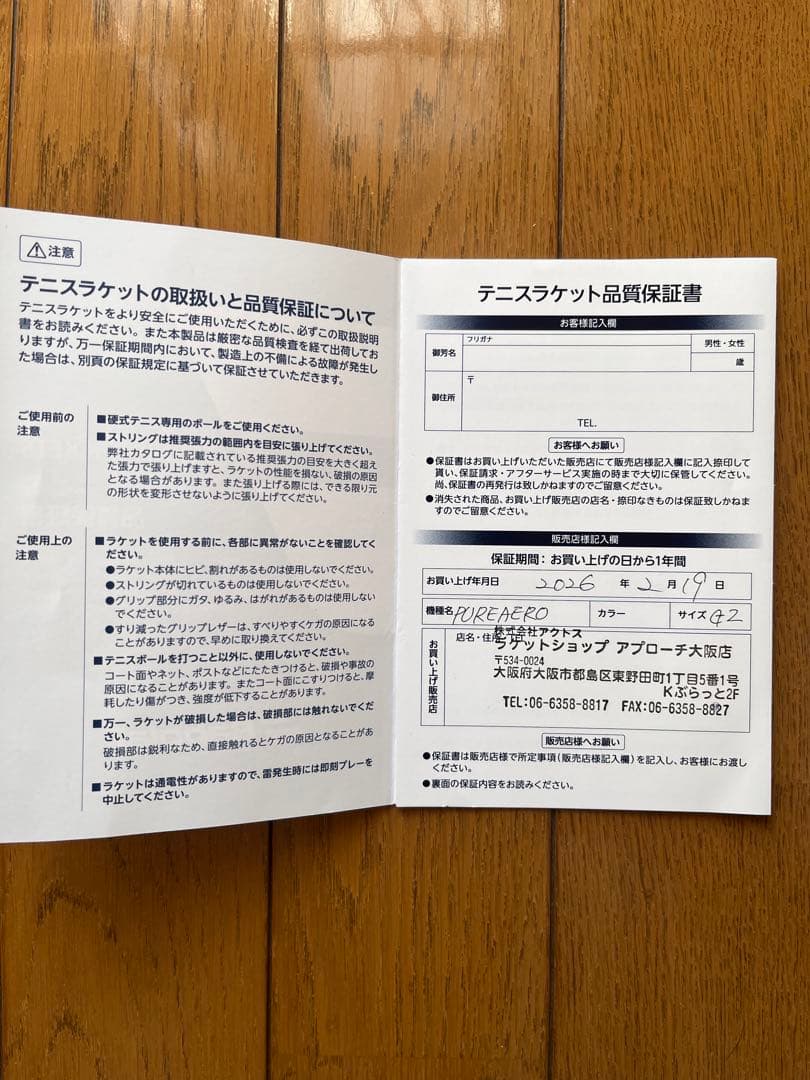 注意
テニスラケットの取扱いと品質保証について
テニスラケットをより安全にご使用いただくために、必ずこの取扱説明
書をお読みください。また本製品は厳密な品質検査を経て出荷してお
りますが、万一保証期間内において、製造上の不備による故障が発生し
た場合は、別頁の保証規定に基づいて保証させていただきます。
ご使用前の
注意
■硬式テニス専用のボールをご使用ください。
■ストリングは推奨張力の範囲内を目安に張り上げてください。
弊社カタログに記載されている推奨張力の目安を大きく超え
た張力で張り上げますと、ラケットの性能を損ない、破損の原因
となる場合があります。また張り上げる際には、できる限り元
の形状を変形させないように張り上げてください。
ご使用上の
注意
■ラケットを使用する前に、各部に異常がないことを確認してく
ださい。
●ラケット本体にヒビ、割れがあるものは使用しないでください。
●ストリングが切れているものは使用しないでください。
●グリップ部分にガタ、ゆるみ、はがれがあるものは使用しない
でください。
●すり減ったグリップレザーは、すべりやすくケガの原因になる
ことがありますので、早めに取り換えてください。
■テニスボールを打つこと以外に、使用しないでください。
コート面やネット、ポストなどにたたきつけると、破損や事故の
原因になることがあります。またコート面にこすりつけると、摩
耗したり傷がつき、強度が低下することがあります。
■万一、ラケットが破損した場合は、破損部には触れないでくだ
さい。
破損部は鋭利なため、直接触れるとケガの原因となることがあ
ります。
■ラケットは通電性がありますので、雷発生時には即刻プレーを
中止してください。
テニスラケット品質保証書
お客様記入欄
フリガナ
御芳名
男性・女性
歳
御住所
〒
TEL.
お客様へお願い
●保証書はお買い上げいただいた販売店にて販売店様記入欄に記入捺印して
貰い、保証請求・アフターサービス実施の時まで大切に保管してください。
尚、保証書の再発行は致しかねますのでご留意ください。
●消失された商品、お買い上げ販売店の店名・捺印なきものは保証致しかねま
すのでご留意ください。
販売店様記入欄
保証期間：お買い上げの日から1年間
お買い上げ年月日 2026 年 2 月 19 日
機種名 PUREAERO カラー サイズ G2
お買い上げ販売店
店名・住所・TEL
株式会社アクトス
ラケットショップ アプローチ大阪店
〒534-0024
大阪府大阪市都島区東野田町1丁目5番1号
Kぷらっと2F
TEL:06-6358-8817 FAX:06-6358-8827
販売店様へお願い
●保証書は販売店様で所定事項（販売店様記入欄）を記入し、お客様にお渡し
ください。
●裏面の保証内容をお読みください。